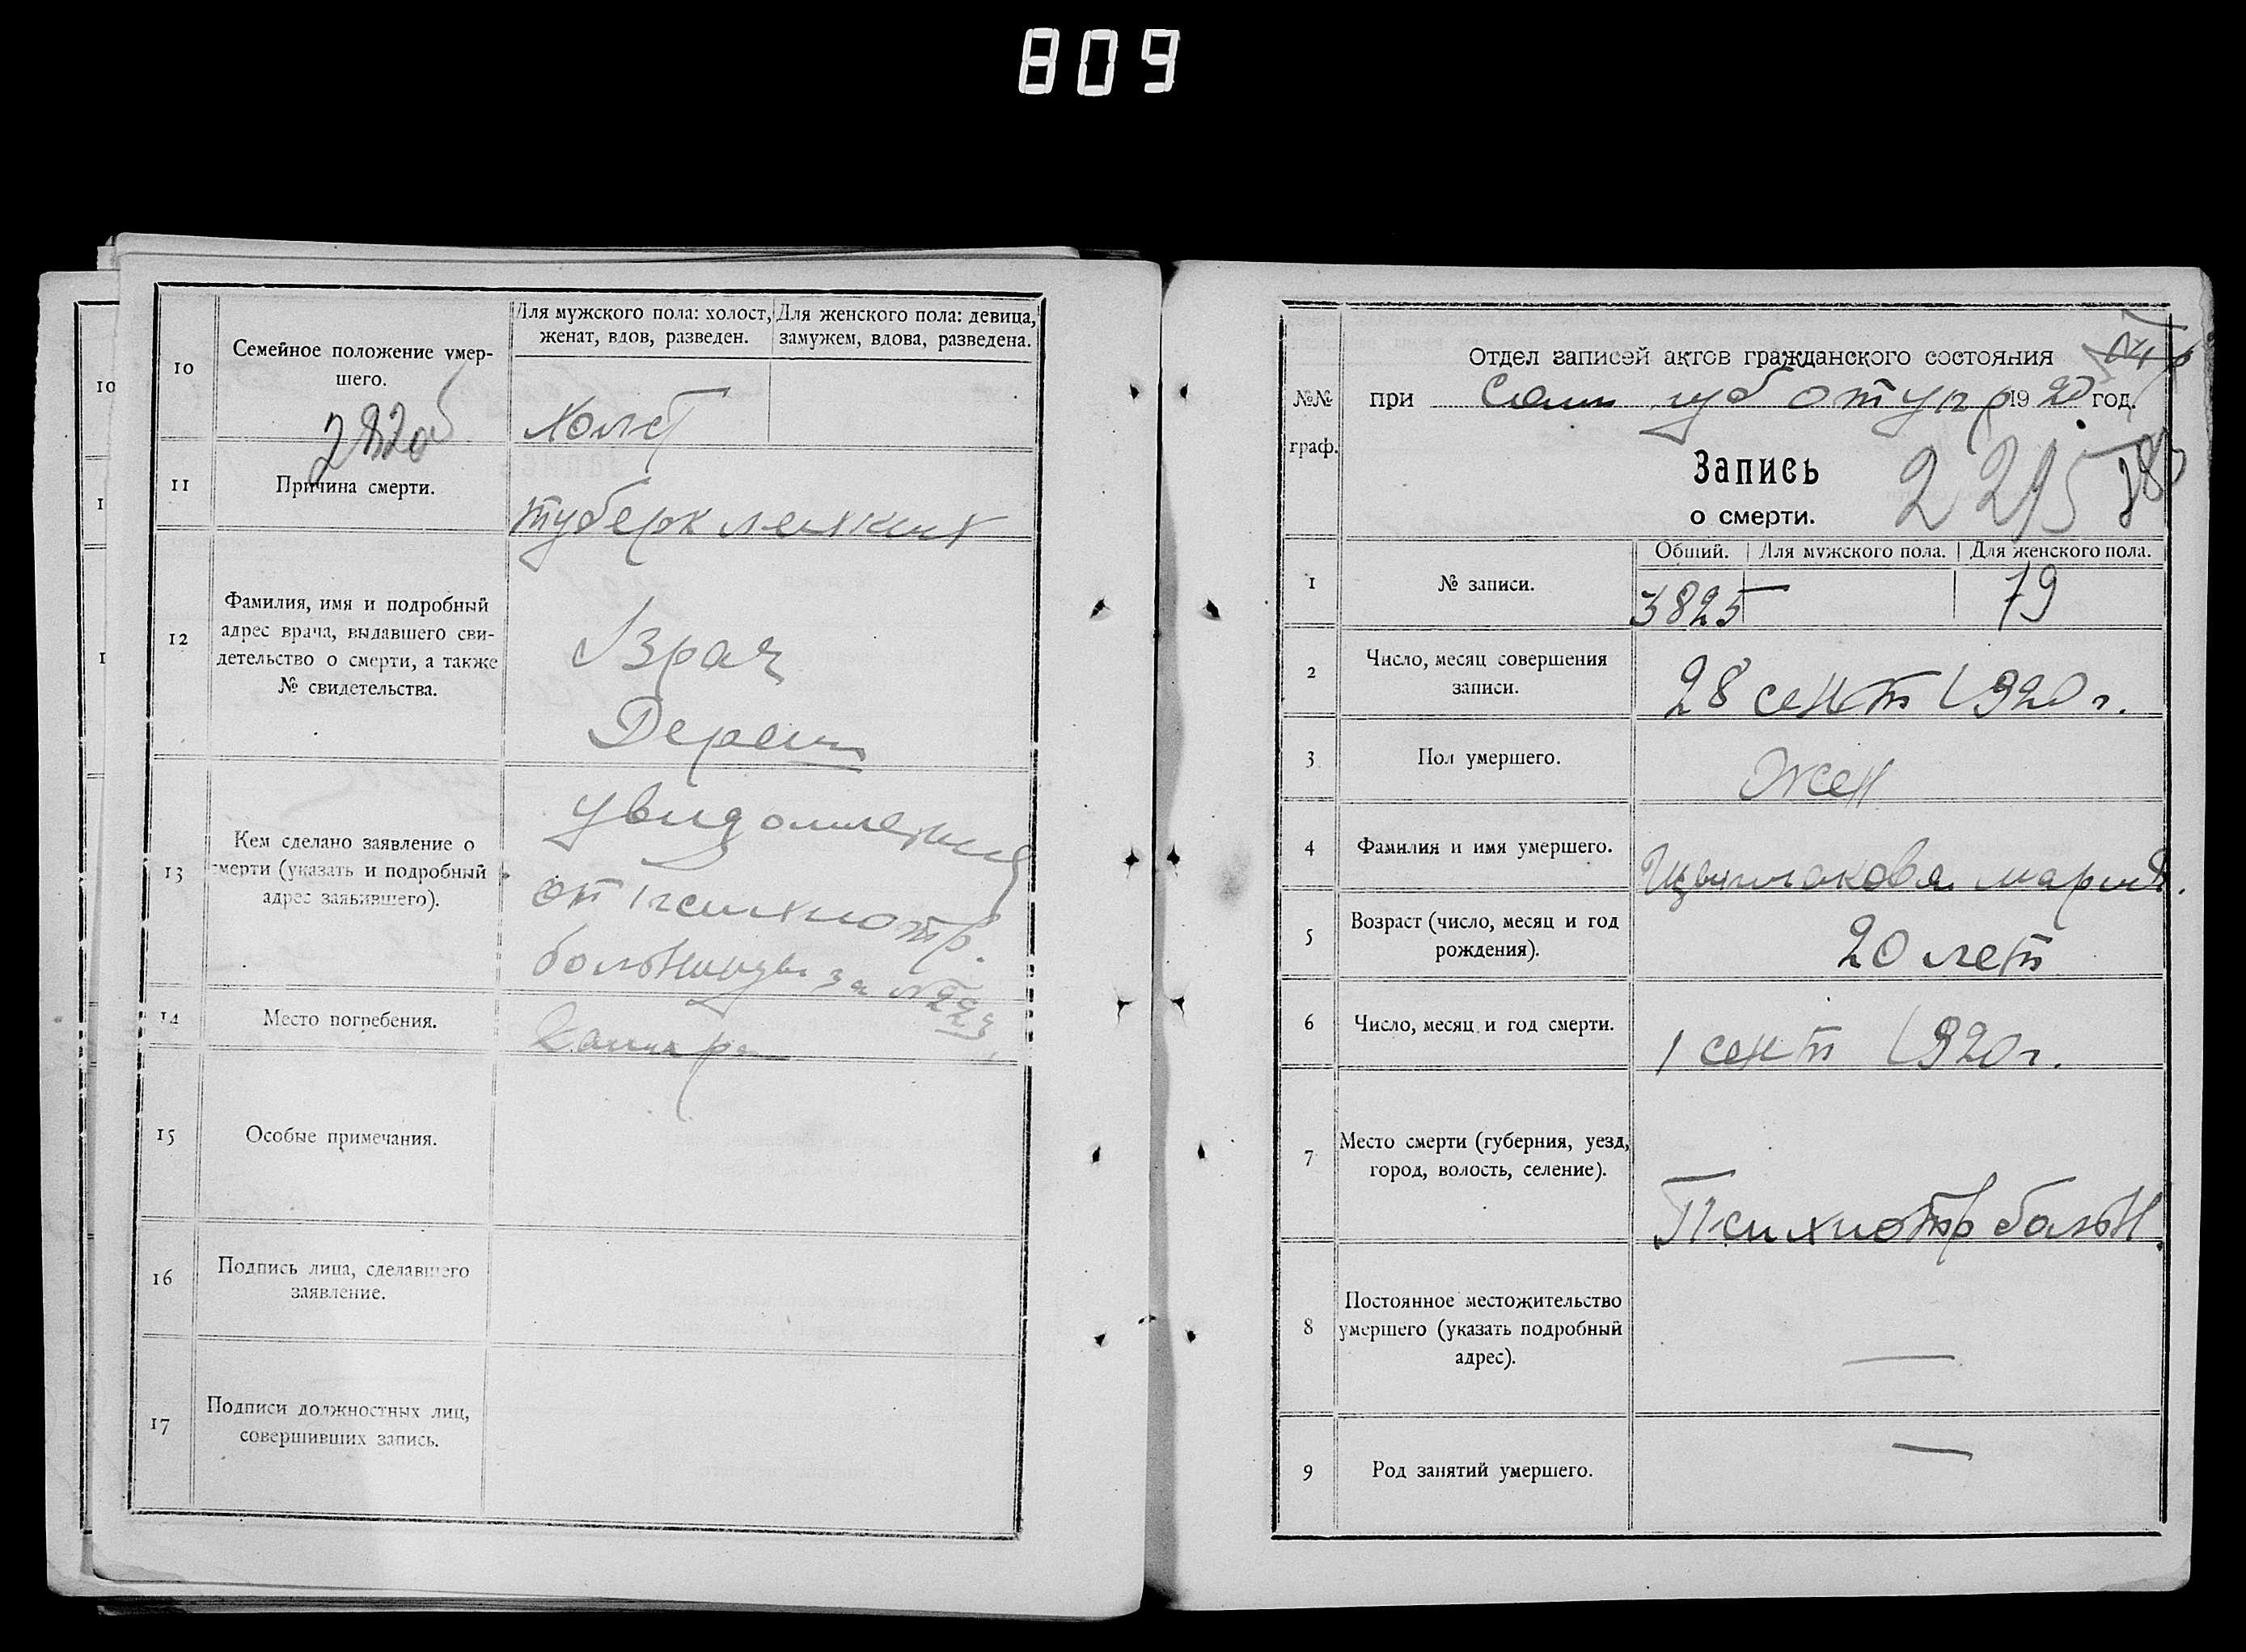 809
10
Семейное положение умер-
шего.
Для мужского пола: холост,
женат, вдов, разведен.
Для женского пола: девица,
замужем, вдова, разведена.
холст
2820
11
Причина смерти.
туберк легких
12
Фамилия, имя и подробный
адрес врача, выдавшего сви-
детельство о смерти, а также
№ свидетельства.
Врач
13
Кем сделано заявление о
смерти (указать и подробный
адрес заявившего).
от психиотр.
больницы за №223
14
Место погребения.
15
Особые примечания.
16
Подпись лица, сделавшего
заявление.
17
Подписи должностных лиц,
совершивших запись.
№№
граф.
Отдел записей актов гражданского состояния
при Сам губ отупр 1920 год.
Запись
о смерти.
2215
1
№ записи.
Общий.
Для мужского пола.
Для женского пола.
3825
79
2
Число, месяц совершения
записи.
28 сент 1920 г.
3
Пол умершего.
Жен
4
Фамилия и имя умершего.
Мария.
5
Возраст (число, месяц и год
рождения).
20 лет
6
Число, месяц и год смерти.
1 сент 1920 г.
7
Место смерти (губерния, уезд,
город, волость, селение).
Психиотр больн.
8
Постоянное местожительство
умершего (указать подробный
адрес).
—
9
Род занятий умершего.
—